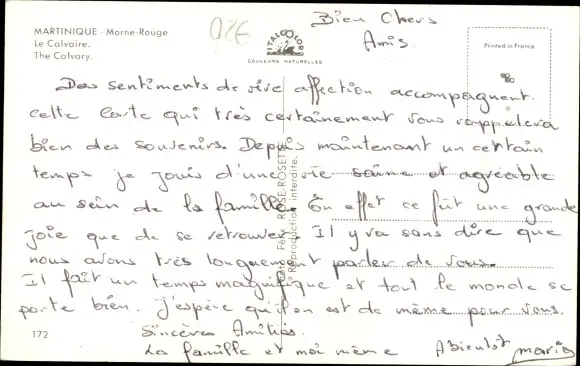 MARTINIQUE - Morne-Rouge
Le Calvaire.
The Calvary.
ITALCOLOR
COULEURS NATURELLES
Printed in France
Bien Chers
Amis.
Des sentiments de vive affection accompagnent
cette Carte qui très certainement vous rappelera
bien des souvenirs. Depuis maintenant un certain
temps je jouis d'une vie saine et agréable
au sein de la famille. En effet ce fût une grande
joie que de se retrouver. Il y va sans dire que
nous avons très longuement parler de vous.
Il fait un temps magnifique et tout le monde se
porte bien. J'espère qu'il en est de même pour vous.
Sincères Amitiés
La famille et moi même A bientôt Marie
172
ROSE-ROSETTE
Reproduction interdite.